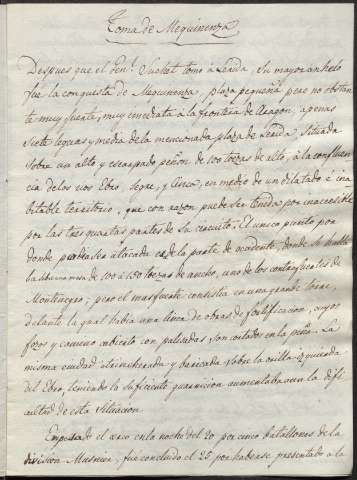 Toma de Mequinenza
Despues que el Gen.l Suchet tomó à Lerida, su mayor anhelo
fue la conquista de Mequinenza, plaza pequeña pero no obstan
te muy fuerte, muy inmediata à la frontera de Aragon, apenas
siete leguas y media dela mencionada plaza de Lerida. Situada
sobre un alto y escarpado peñon de 100 toezas de alto, à la confluen
cia delos rios Ebro, Segre, y Cinca, en medio de un dilatado é inha
bitable territorio, que con razon puede ser tenida por inaccesible
por las tres quartas partes de su circuito. El unico punto por
donde podia sea atacada es de la parte de occidente, donde se halla
la de 100 à 150 toezas de ancho, uno de los contrafuertes de
Montnegro; pero el mas fuerte consistia en una grande torre,
delante la qual habia una linea de obras de fortificacion, cuyos
fosos y camino cubierto con palizadas son cortados en la peña. La
misma ciudad atrincherada y baricada sobre la orilla izquierda
del Ebro, teniendo la suficiente guarnicion aumentaba aun la difi
cultad de esta situacion.
Empezado el cerco en la noche del 20 por cinco batallones de la
division Musnier, fue concluido el 25 por haberse presentado à la